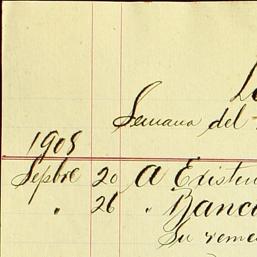 Semana del
1905
Sepbre 20 A Existen
" 26 " Banco
Su reme